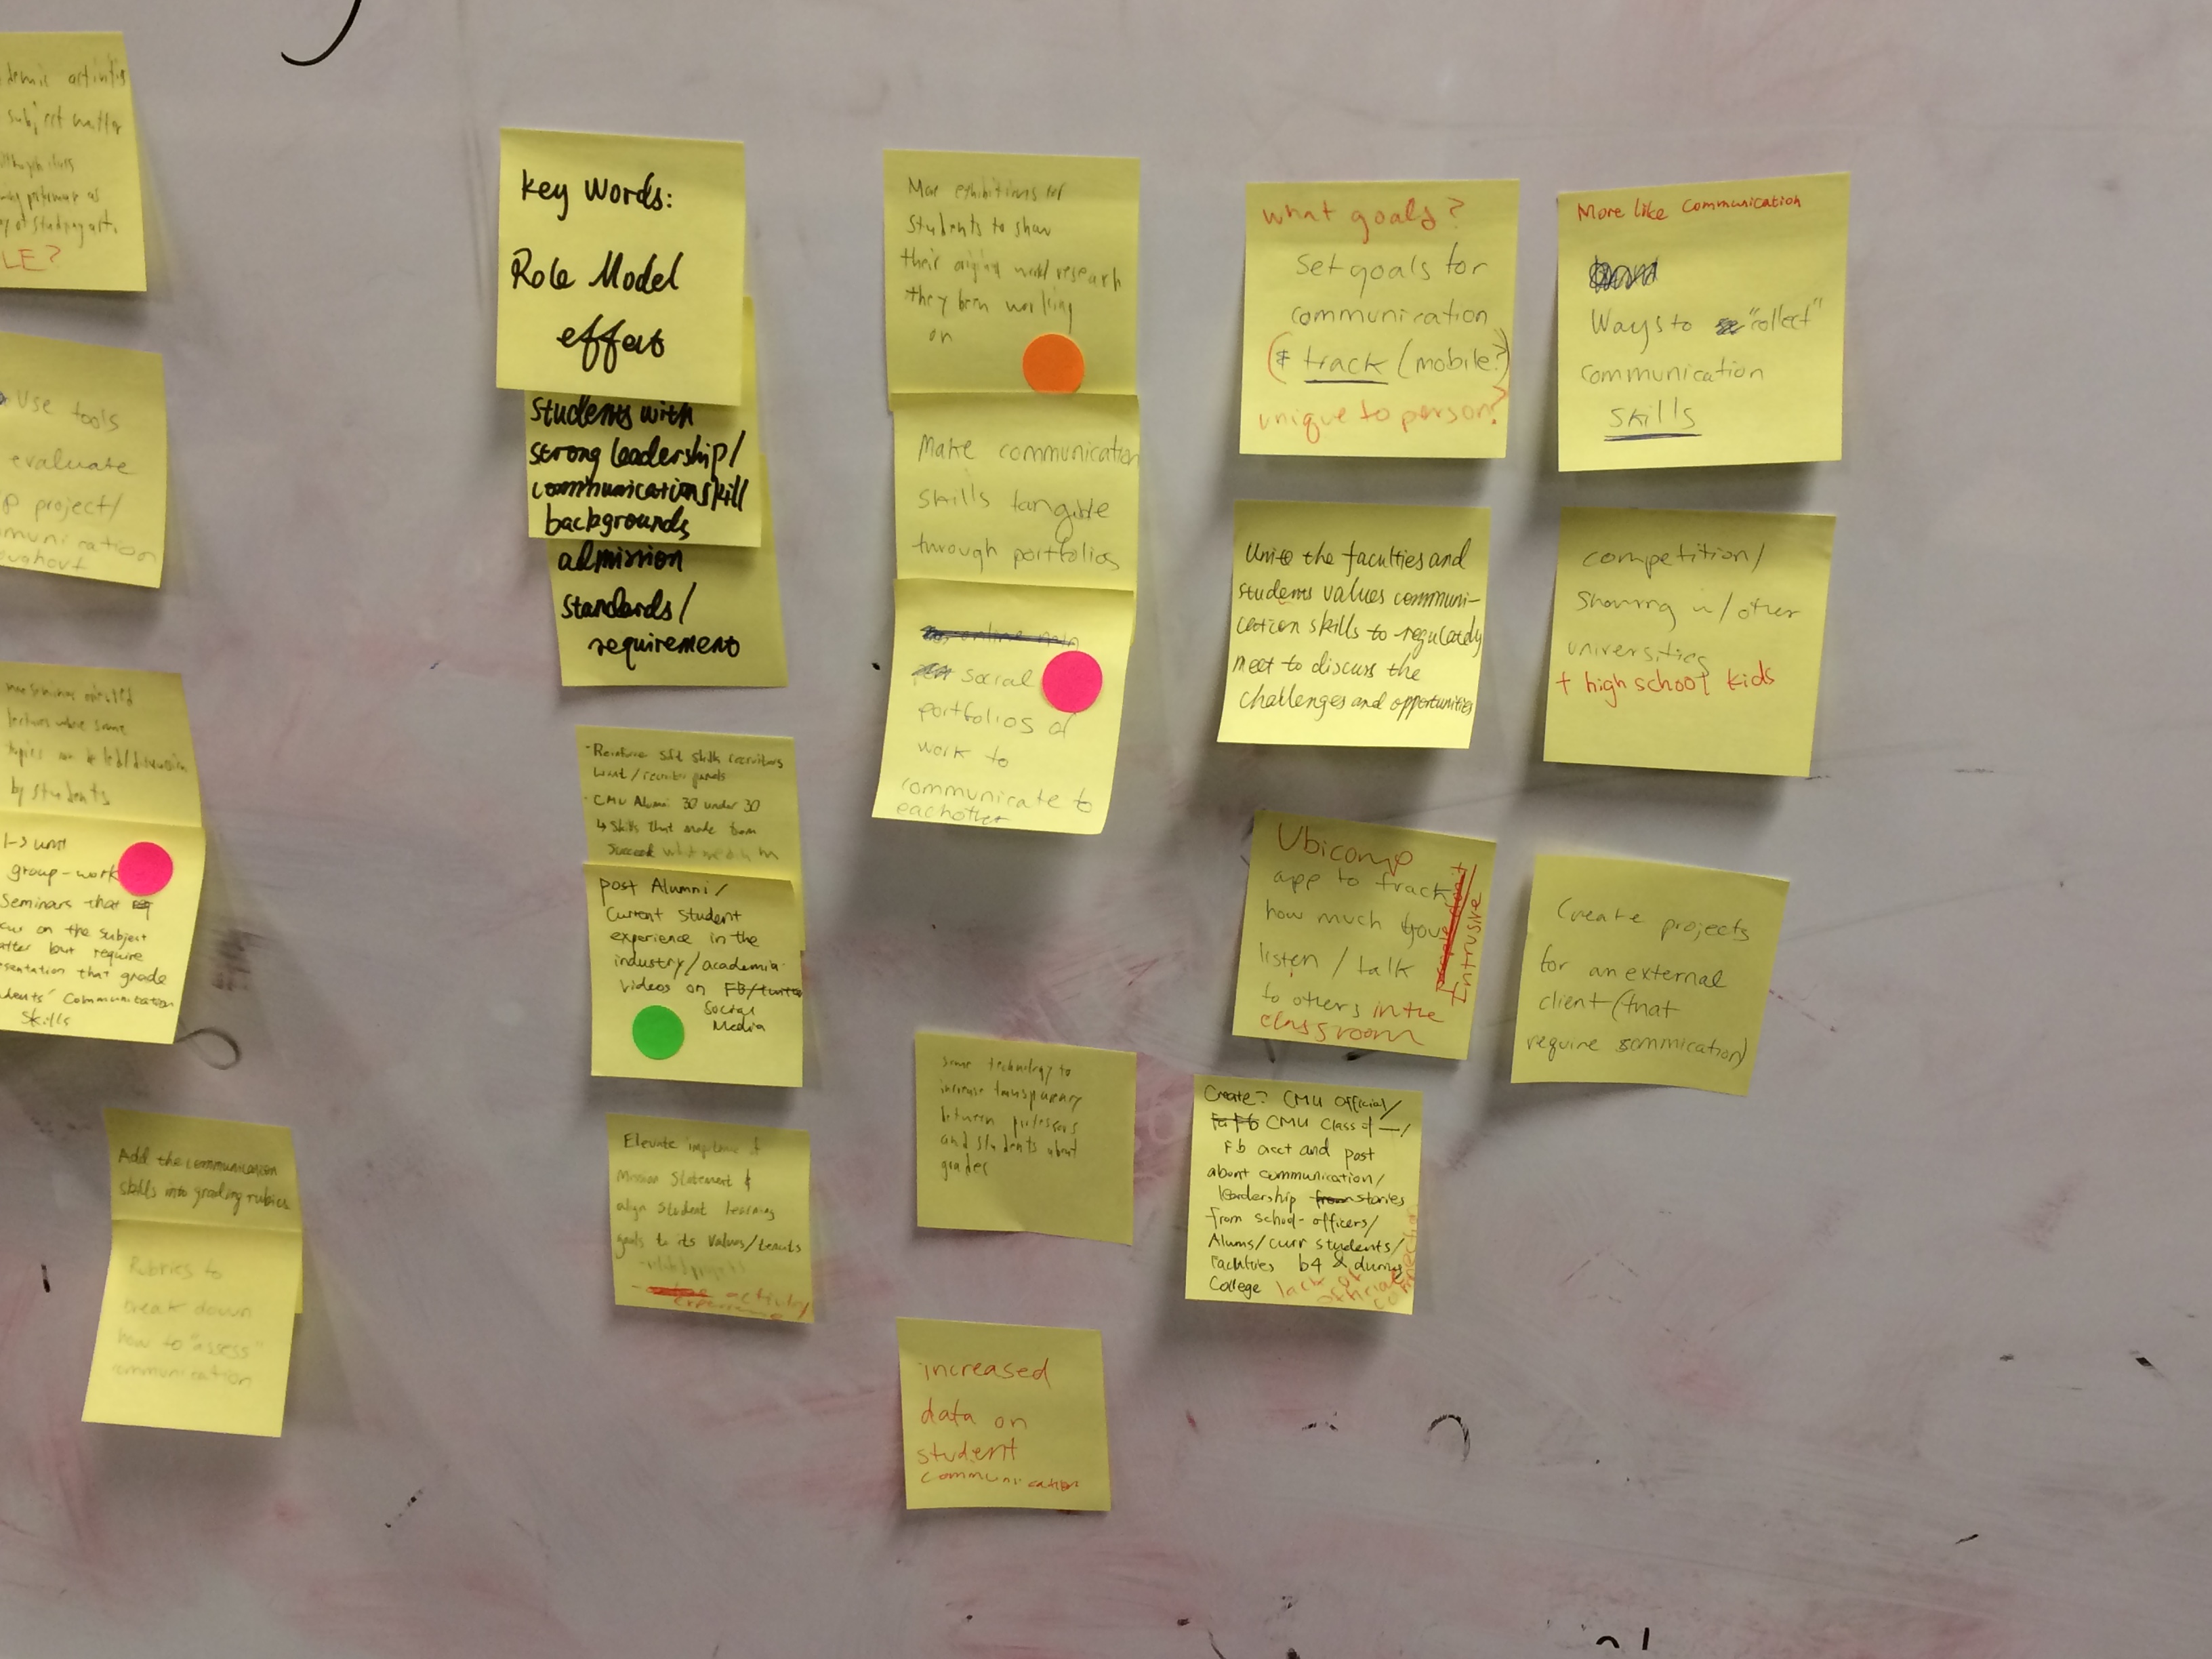 subject matter
LE?
Use tools
evaluate
project/
by students
group-work
Seminars that
on the subject
but require
that grade
Communication
Skills
Add the communication
skills into grading rubrics
Rubrics to
break down
how to "assess"
communication
Key Words:
Role Model
effect
students with
strong leadership/
communication skill
backgrounds
admission
standards/
requirement
want/recruiter panels
- CMU Alumni 30 under 30
↳ skills that made them
succeed
post Alumni/
Current student
experience in the
industry/academia
videos on FB/twitter
Social
Media
Elevate
Mission Statement &
align student learning
goals to its values/tenets
activity/
experience
More exhibitions for
students to show
their original work/research
they been working
on
Make communication
skills tangible
through portfolios
social
portfolios of
work to
communicate to
eachother
some technology to
increase transparency
between professors
and students about
grades
increased
data on
student
communication
what goals?
Set goals for
communication
(& track (mobile?)
unique to person?
Unite the faculties and
students values communi-
cation skills to regulately
meet to discuss the
challenges and opportunities
Ubicomp
app to track
how much
listen / talk
to others in the
classroom
Intrusive
Create? CMU Official/
CMU Class of —/
Fb acct and post
about communication/
leadership from stories
from school-officers/
Alums/curr students/
Faculties b4 & during
College
lack of
official
connection
More like communication
Ways to "collect"
communication
skills
competition/
sharing w/ other
universities
+ high school kids
Create projects
for an external
client (that
require commication)